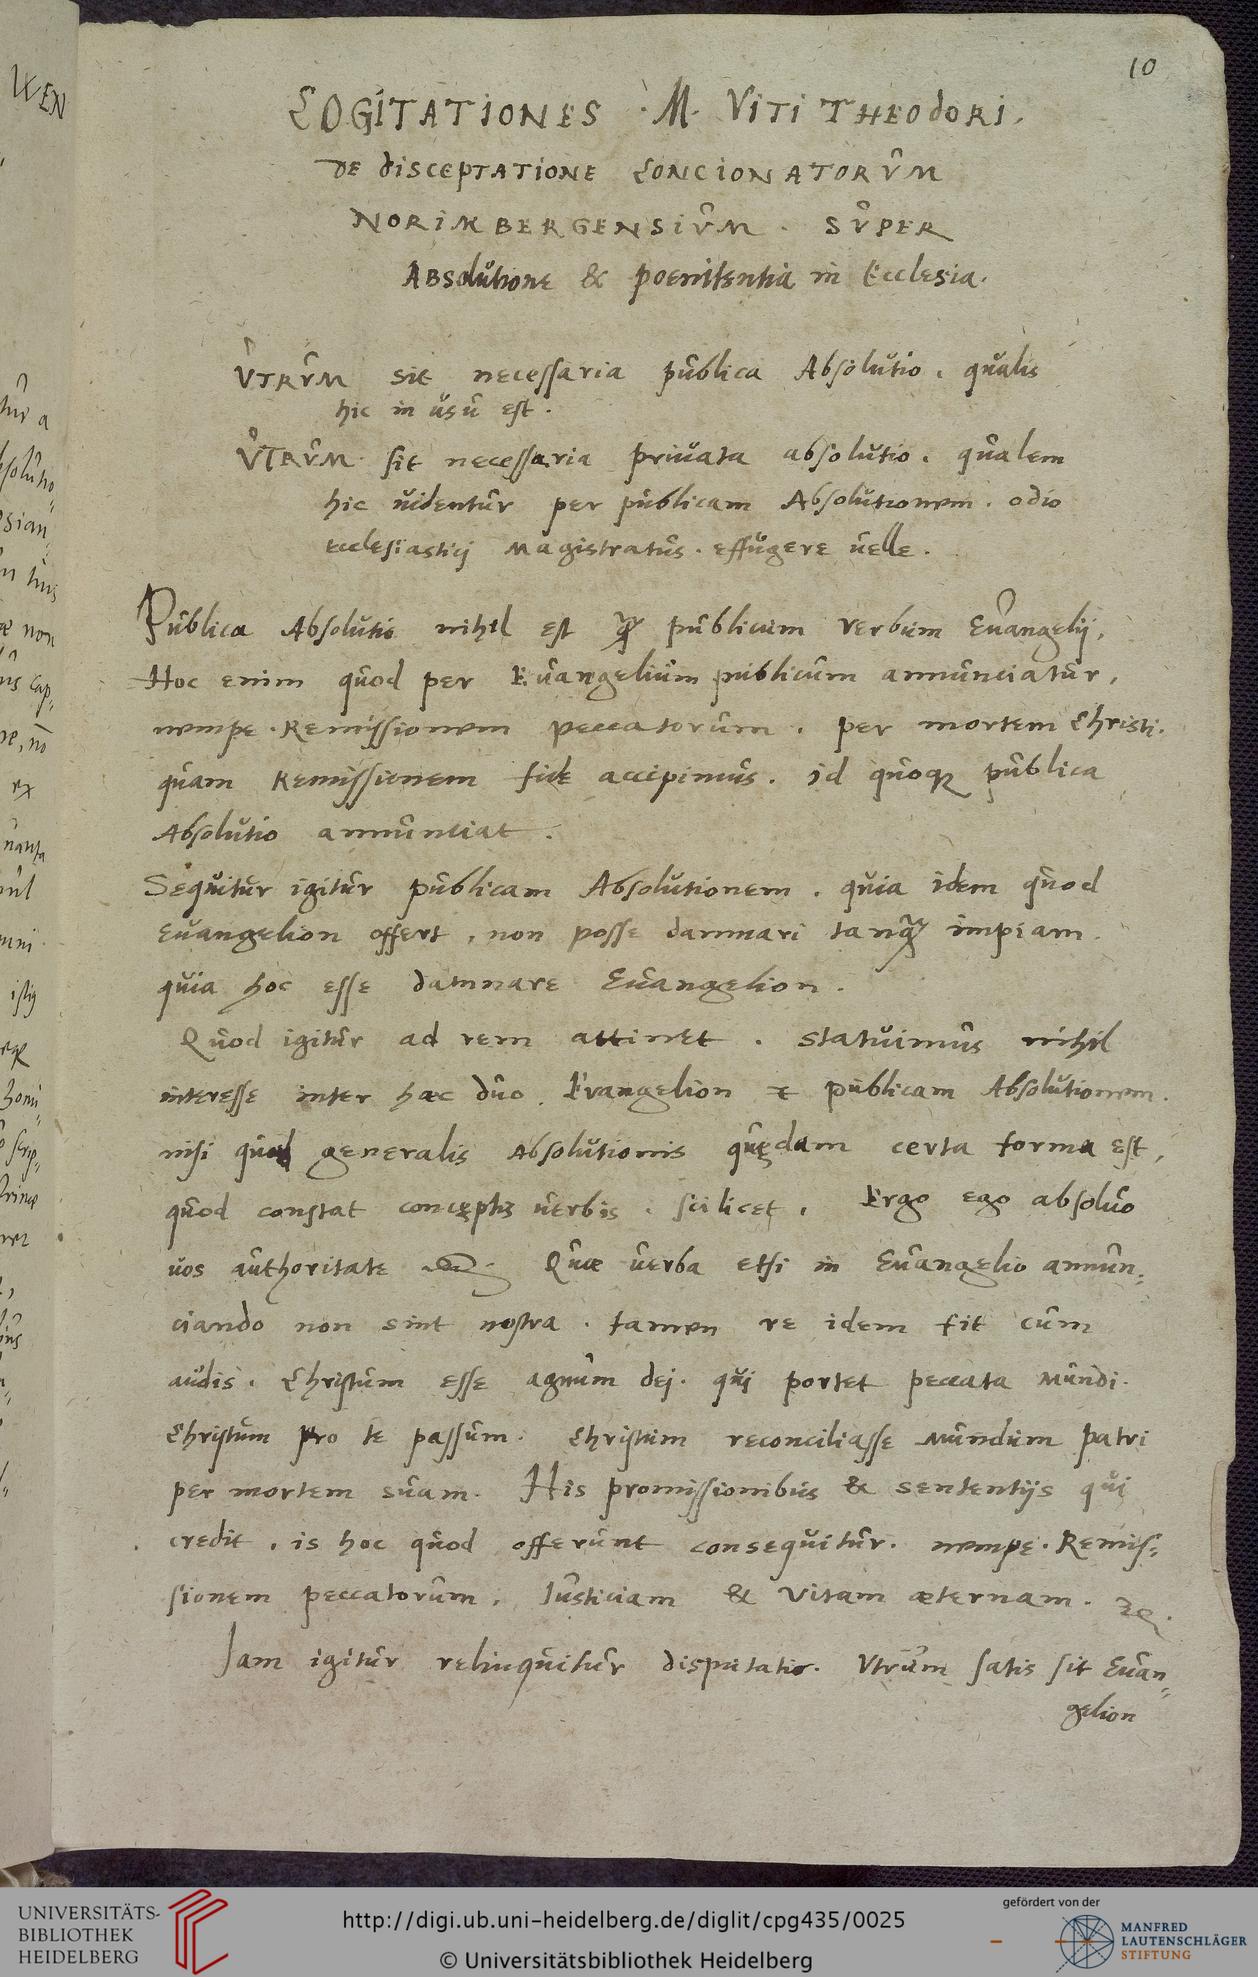 10
COGITATIONES . M. VITI THEODORI.
DE DISCEPTATIONE CONCIONATORVM
NORIMBERGENSIVM . SVPER
Absolutione & poenitentia in Ecclesia.
VTRVM sit necessaria publica Absolutio . qualis
hic in usu est .
VTRVM sit necessaria priuata absolutio . qualem
hic uidentur per publicam Absolutionem . odio
ecclesiasticj Magistratus . effugere uelle .
Publica Absolutio nihil est publicum verbum Euangelij,
Hoc enim quod per Euangelium publicum annunciatur,
nempe . Remissionem peccatorum . per mortem Christi.
quam Remissionem fide accipimus . id quoque publica
Absolutio annunciat .
Sequitur igitur publicam Absolutionem . quia idem quod
Euangelion offert , non posse damnari impiam .
quia hoc esse damnare Euangelion .
Quod igitur ad rem attinet . statuimus nihil
interesse inter haec duo . Evangelion & publicam Absolutionem .
nisi quod generalis Absolutionis quędam certa forma est,
quod constat conceptis uerbis . scilicet , Ergo ego absoluo
uos authoritate Quae uerba etsi in Euangelio annun-
ciando non sint nostra . tamen re idem fit cum
audis . Christum esse agnum dej . quj portet peccata Mundi .
Christum pro te passum . Christum reconciliasse Mundum patri
per mortem suam . His promissionibus & sententijs qui
credit . is hoc quod offerunt consequitur . nempe . Remis-
sionem peccatorum , Iusticiam & Vitam aeternam . &c.
Iam igitur relinquitur disputatio . Vtrum satis sit Euan-
gelion
UNIVERSITÄTS-
BIBLIOTHEK
HEIDELBERG
http://digi.ub.uni-heidelberg.de/diglit/cpg435/0025
© Universitätsbibliothek Heidelberg
gefördert von der
MANFRED
LAUTENSCHLÄGER
STIFTUNG